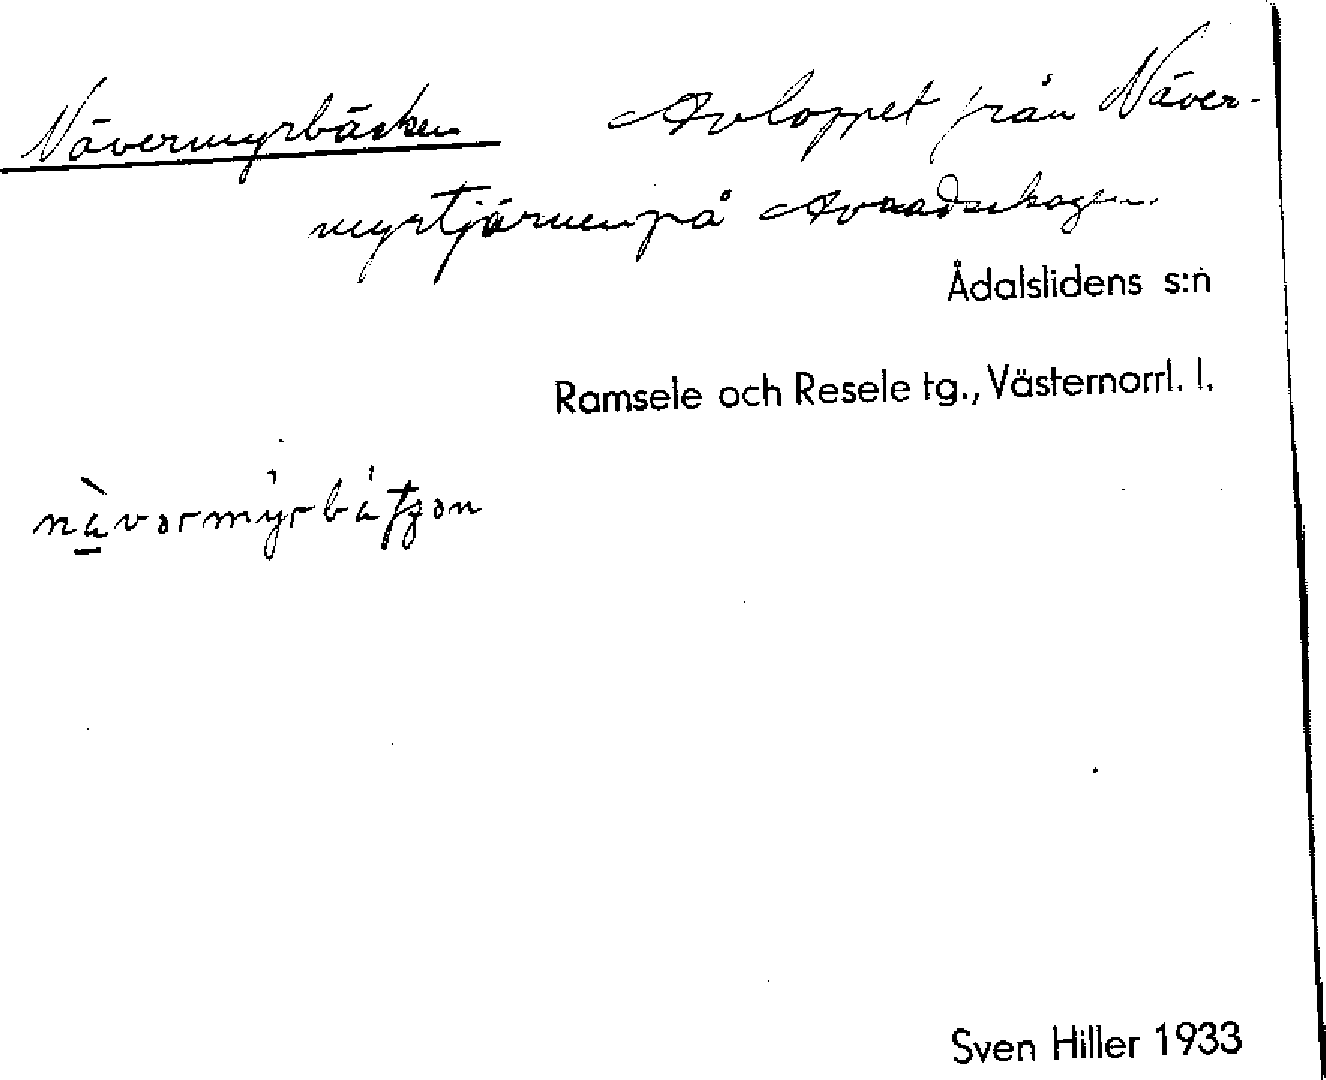 Nävermyrbäcken Avloppet från Näver-
myrtjärnen på Avaadsskogen.
Ådalslidens s:n
Ramsele och Resele tg., Västernorrl. l.
Sven Hiller 1933